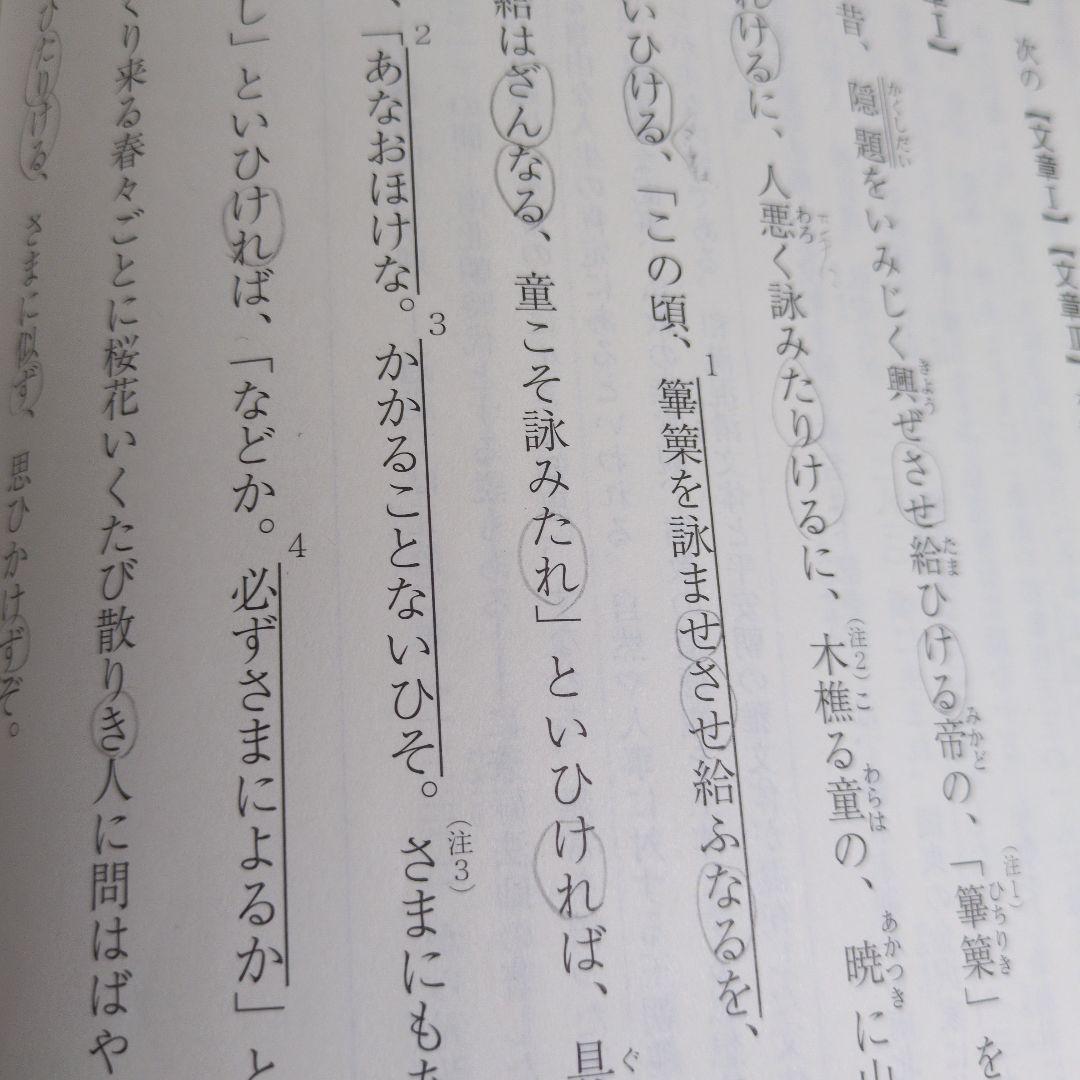 次の【文章Ⅰ】【文章Ⅱ】
昔、隠題をいみじく興ぜさせ給ひける帝の、「篳篥」を
かくしだい
きよう
たま
みかど
(注1)
ひちりき
けるに、人悪く詠みたりけるに、木樵る童の、暁に山
わろ
(注2)
こ
わらは
あかつき
いひける、「この頃、篳篥を詠ませさせ給ふなるを、
1
給はざんなる、童こそ詠みたれ」といひければ、具
ぐ
、「あなおほけな。かかることないひそ。さまにも
2
3
(注3)
し」といひければ、「などか。必ずさまによるか」と
4
くり来る春々ごとに桜花いくたび散りき人に問はばや
ひたりける、さまに似ず、思ひかけずぞ。